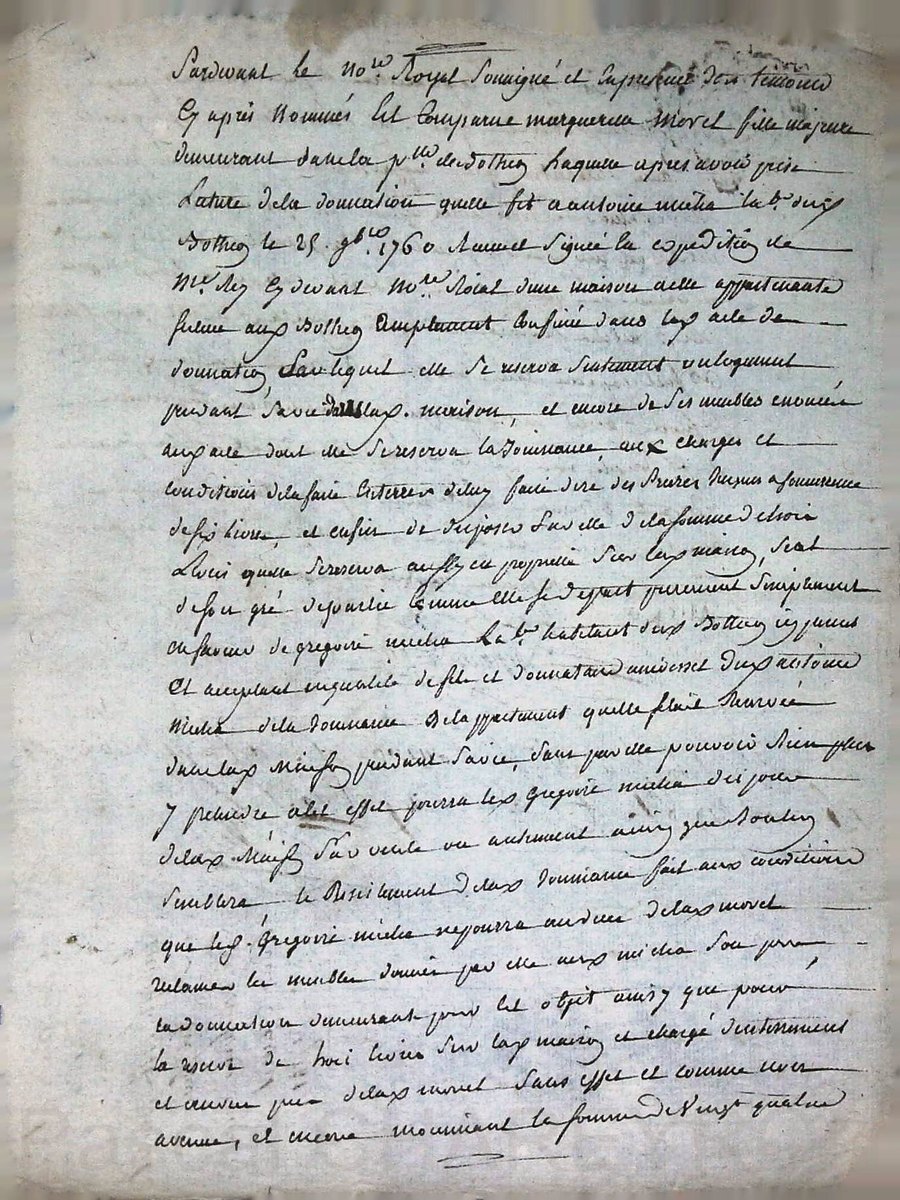 Pardevant le Nore Royal Soussigné et En presence des temoins
Cy après Nommés Est Comparue marguerite Morel fille majeure
demeurant dans la pse de Bothéon Laquelle après avoir prise
Lecture de la donnation quelle fit a antoine micha lab. dud
Bothéon le 25. 9bre 1760 Signée En expedition de
Me Rey Cy devant Nore Roial dune maison a elle appartenante
située aux Bothéon Amplement Confinée dans lax acte de
donnation, Sur lequel elle se reserva Seulement un logement
pendant Sa vie dans lax. maison, et encore de Ses meubles enoncés
aux acte dont elle se reserva la Jouissance aux charges et
conditions de la faire Enterrer de luy faire dire des Prieres
de six livres, et enfin de disposer par elle de la somme de trois
Livres quelle se reserva aussy en propriété Sur lax maison, S'est
de son gré departie Comme Elle se depart purement Simplement
en faveur de gregoire micha Lab. habitant dux Bothéon icy present
Et acceptant en qualité de fils et donnataire universel dux antoine
Micha de la Jouissance de lappartement quelle s'étoit Reservée
dans lax Maison pendant Sa vie, Sans par elle pouvoir Rien plus
y pretendre a Cet effet pourra lex Gregoire micha disposer
delax Maison Par vente ou autrement ainsy que bon luy
Semblera le Resiliement delax Jouissance fait aux conditions
que led. Gregoire micha ne pourra au deces delax morel
reclamer les meubles donnés par elle aux micha Son pere
la donnation demeurant pour Cet objet ainsy que pour
la reserve de trois livres Sur lax maison et charge denterrement
et œuvres pies delax morel Sans effet et comme non
avenue, et encore moiennant la somme de Vingt quatre